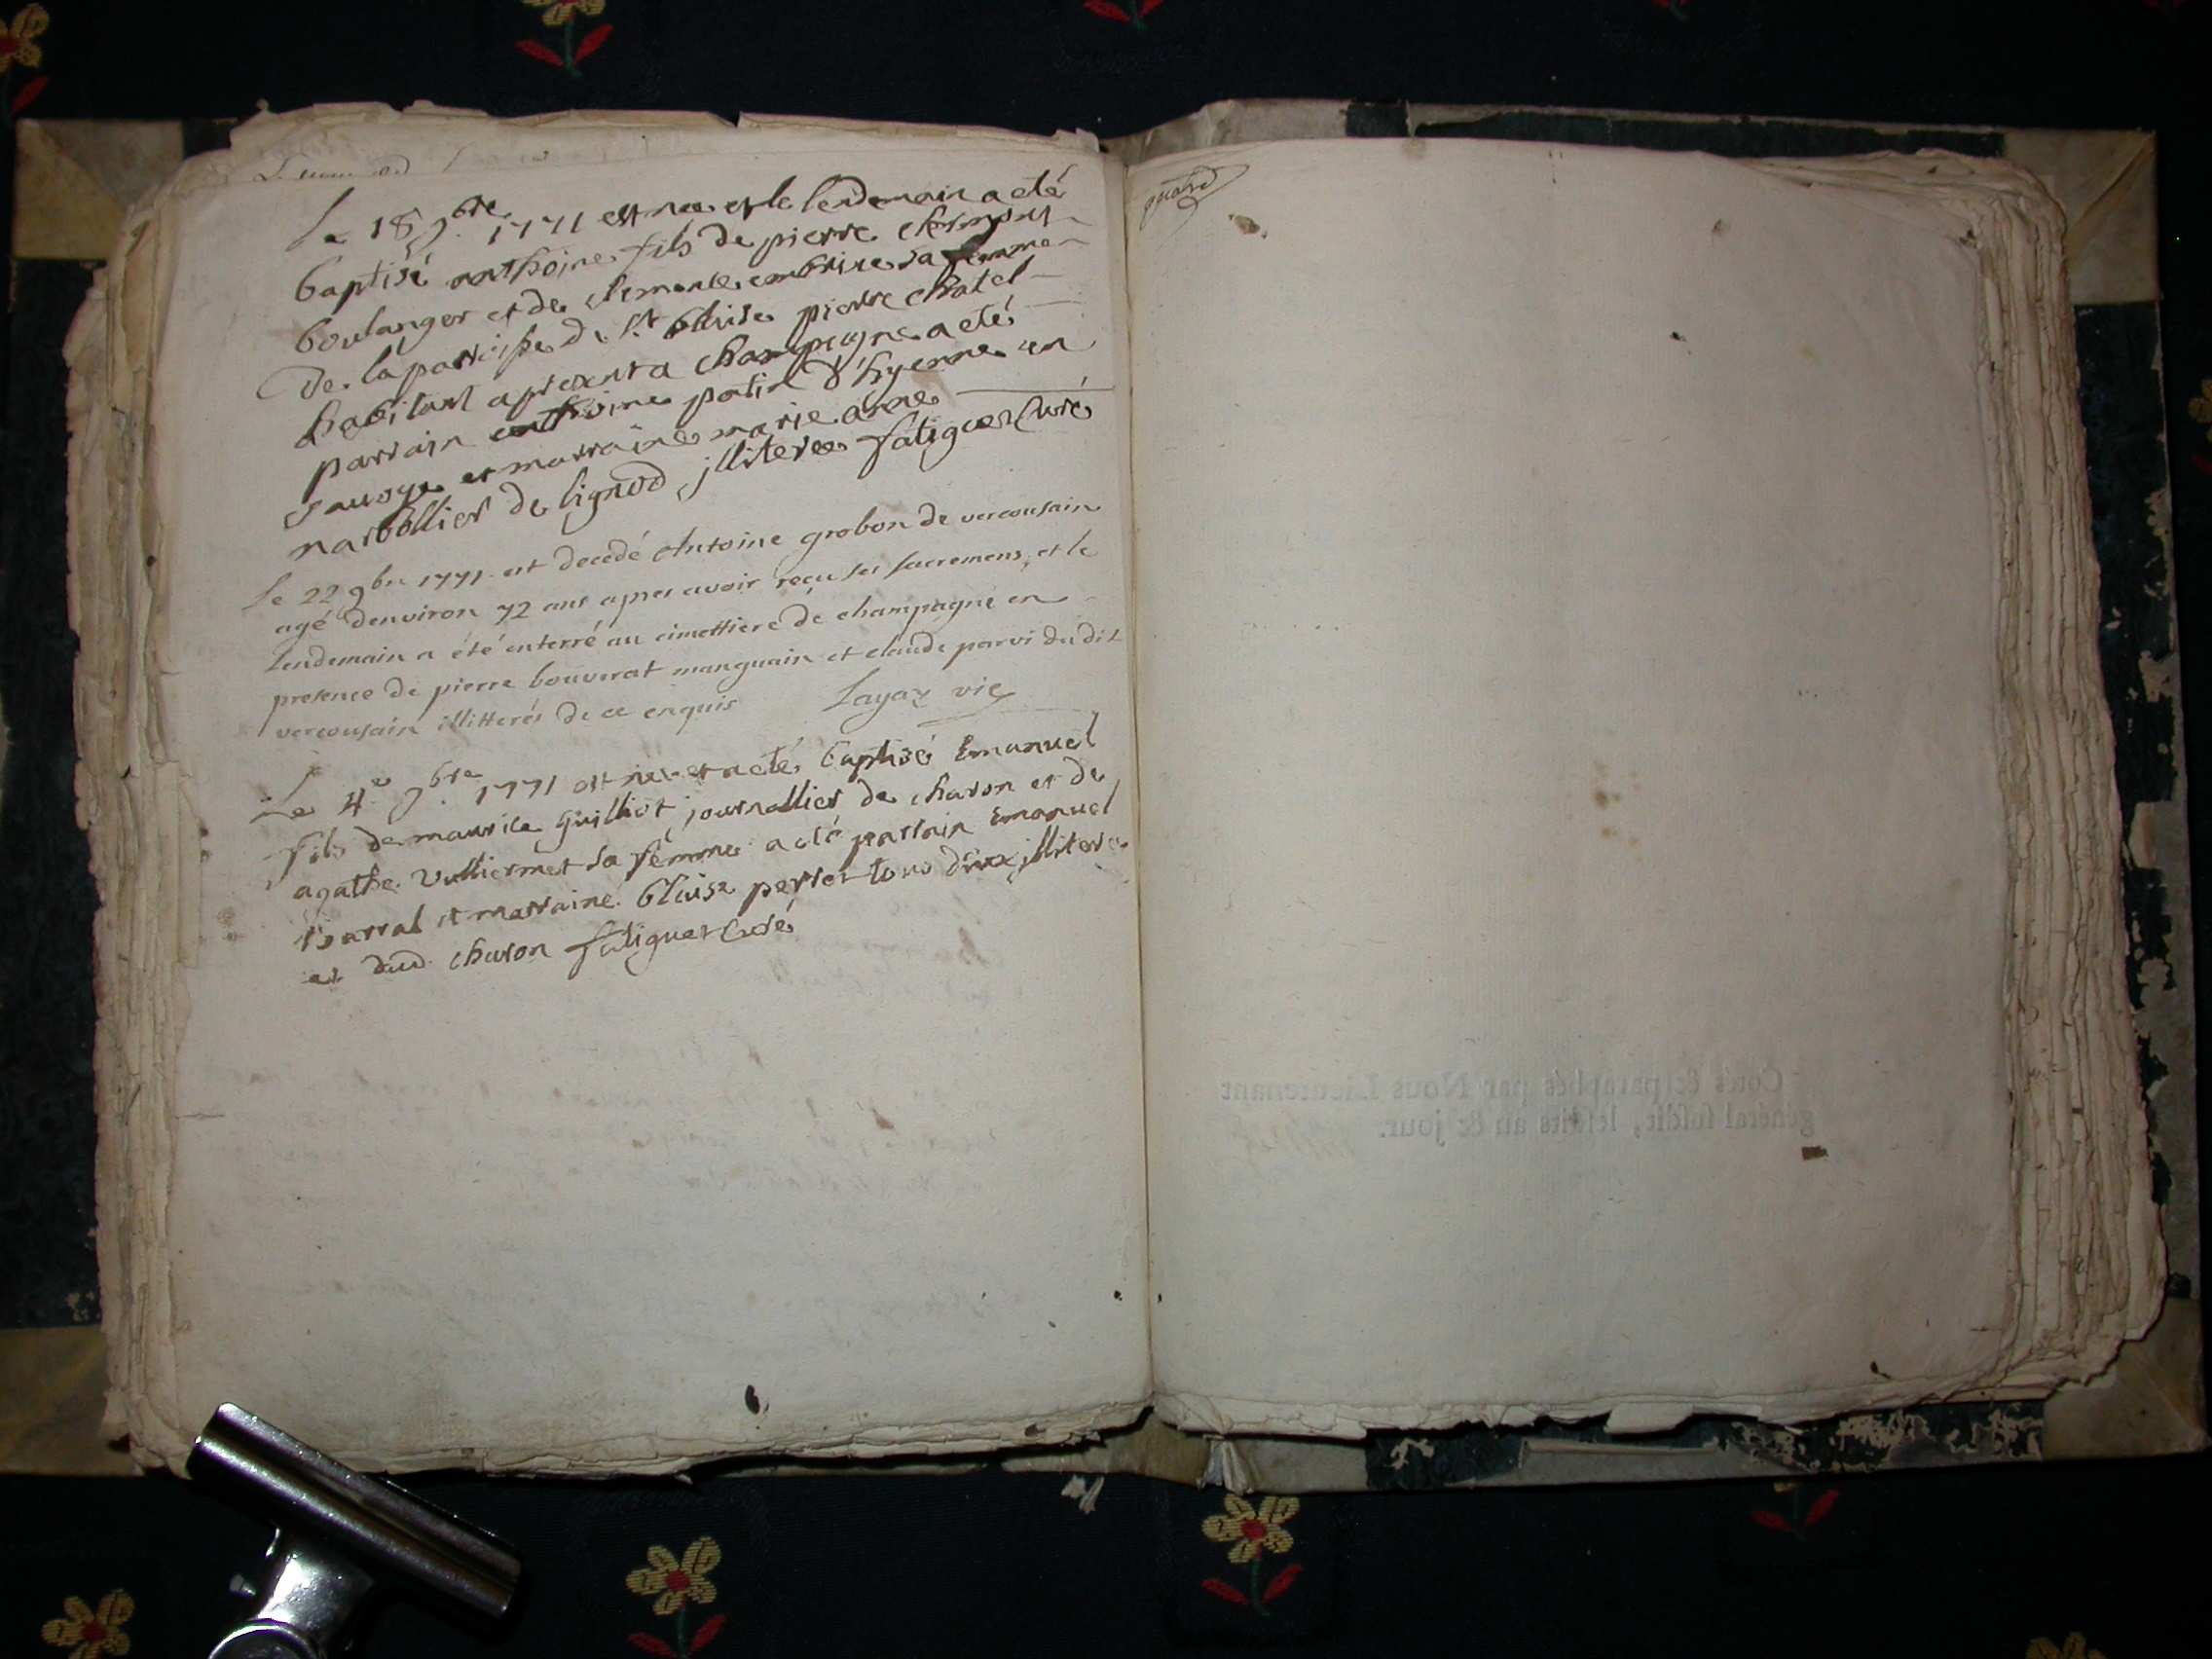 Le 18 9.bre 1771 est née et le lendemain a eté
baptisé anthoine fils de pierre
boulanger et de clemence sa femme
de la paroisse de st blaise pierre chatel
habitant apresent a champagne a eté
parrain anthoine patin d'hyenne en
savoye et marraine marie anne
narbollier de lignod illiteree fatiguet curé
le 22 9bre 1771 est decedé Antoine grobon de vercousain
agé denviron 72 ans apres avoir reçu ses sacremens, et le
lendemain a été enterré au cimettiere de champagne en
presence de pierre bouverat manguain et claude parvi dudit
vercousain illitterés de ce enquis Layaz vic
Le 4.e 9.bre 1771 est née et a eté baptisé Emanuel
fils de maurice guilliot journallier de charon et de
agathe vulliermet sa femme a eté parrain Emanuel
barral et marraine blaise perret tous deux illiteré
et dud. charon fatiguet curé
Cotés & paraphés par Nous Lieutenant
général susdit, lesdits an & jour.